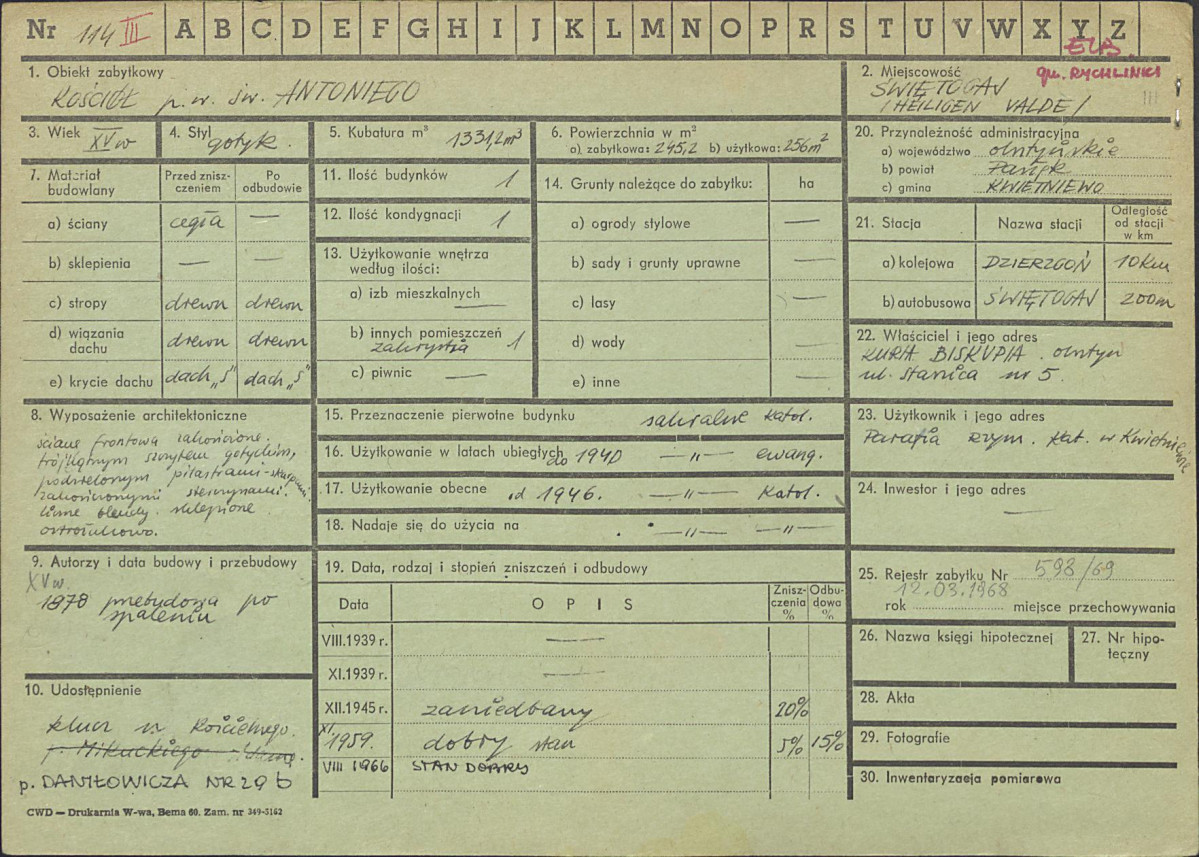 Nr 114 III A B C D E F G H I J K L M N O P R S T U V W X Y Z
ELB.
1. Obiekt zabytkowy
KOŚCIÓŁ p.w. św. ANTONIEGO
2. Miejscowość gm. RYCHLIKI
ŚWIĘTOGAJ
/HEILIGEN VALDE/
3. Wiek XV w
4. Styl gotyk.
5. Kubatura m³ 1331,2m³
6. Powierzchnia w m²
a) zabytkowa: 245,2 b) użytkowa: 256m²
20. Przynależność administracyjna
a) województwo olsztyńskie
b) powiat Pasłęk
c) gmina KWIETNIEWO
7. Materiał budowlany
Przed zniszczeniem
Po odbudowie
a) ściany cegła —
b) sklepienia — —
c) stropy drewn drewn
d) wiązania dachu drewn drewn
e) krycie dachu dach „S" dach „S"
11. Ilość budynków 1
12. Ilość kondygnacji 1
13. Użytkowanie wnętrza
według ilości:
a) izb mieszkalnych —
b) innych pomieszczeń
zakrystia 1
c) piwnic —
14. Grunty należące do zabytku: ha
a) ogrody stylowe —
b) sady i grunty uprawne —
c) lasy —
d) wody —
e) inne
21. Stacja Nazwa stacji Odległość od stacji w km
a) kolejowa DZIERZGOŃ 10 km
b) autobusowa ŚWIĘTOGAJ 200m
22. Właściciel i jego adres
KURIA BISKUPIA . olsztyn
ul. Stanica nr 5.
8. Wyposażenie architektoniczne
ściana frontowa zakończone
trójkątnym szczytem gotyckim,
podzielonym pilastrami
zakończonymi sterczynami.
blendy. sklepione
ostrołukowo.
15. Przeznaczenie pierwotne budynku sakralne Katol.
16. Użytkowanie w latach ubiegłych do 1940 —„— ewang.
17. Użytkowanie obecne od 1946. —„— Katol.
18. Nadaje się do użycia na —„— —„—
23. Użytkownik i jego adres
Parafia rzym. kat. w Kwietniewie
24. Inwestor i jego adres
—
9. Autorzy i data budowy i przebudowy
XV w.
1878 przebudowa po
spaleniu
19. Data, rodzaj i stopień zniszczeń i odbudowy
Data OPIS Zniszczenia % Odbudowa %
VIII.1939 r. —
XI.1939 r. —
XII.1945 r. zaniedbany 20%
XI 1959. dobry stan 5% 15%
VIII 1966 STAN DOBRY
25. Rejestr zabytku Nr 593/69
12.03.1968
rok miejsce przechowywania
26. Nazwa księgi hipotecznej
27. Nr hipoteczny
28. Akta
29. Fotografie
30. Inwentaryzacja pomiarowa
10. Udostępnienie
klucz u Kościelnego.
p. Mikuckiego
p. DANIŁOWICZA NR 29 b
CWD — Drukarnia W-wa, Bema 60. Zam. nr 349-5162